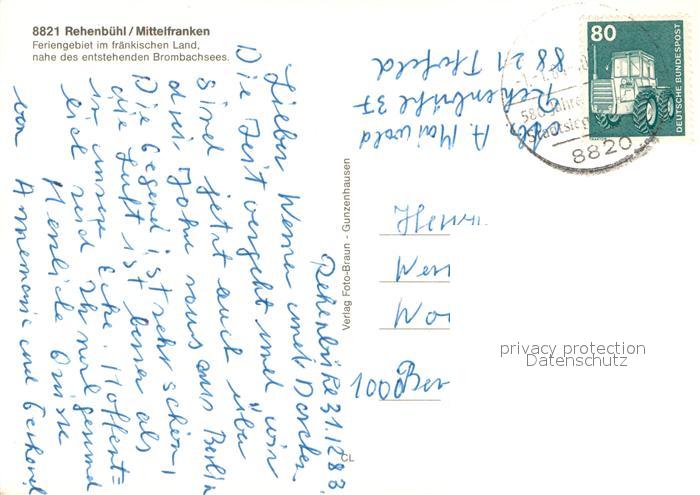 8821 Rehenbühl/Mittelfranken
Feriengebiet im fränkischen Land,
nahe des entstehenden Brombachsees.
Rehenbühl 31.12.83.
Lieber Werner und
Die Zeit vergeht und wir
sind jetzt auch über
drei Jahre raus aus Berlin
Die Gegend ist sehr schön,
die Luft ist besser als
in unsere Ecke. Hoffent=
lich seid Ihr noch gesund
Herzliche Grüße
von Annemarie und Gerhard
Verlag Foto-Braun - Gunzenhausen
CL
A. Maiwald
Rehenbühl 37
8821
80
DEUTSCHE BUNDESPOST
580 Jahre
8820
Herrn
Wer
Wo
1000 Ber
privacy protection
Datenschutz